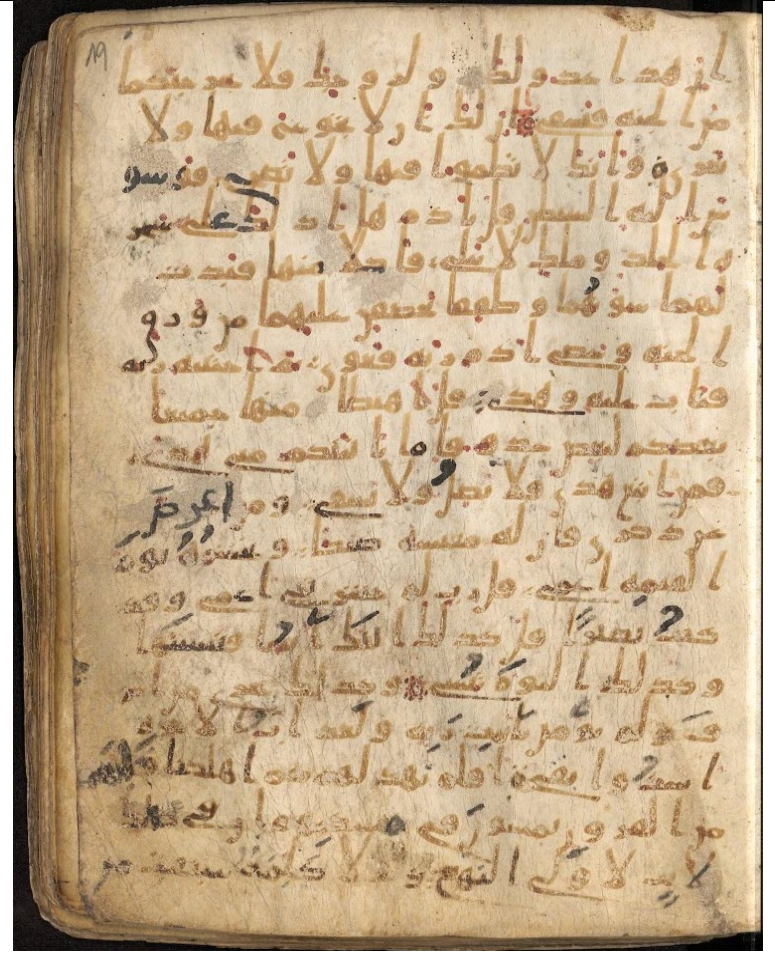 19
ان هذا عدو لك ولزوجك فلا يخرجنكما
من الجنة فتشقى ان لك الا تجوع فيها ولا
تعرى وانك لا تظموا فيها ولا تضحى فوسو
س اليه الشيطن قال يادم هل ادلك على شجر
ة الخلد وملك لا يبلى فاكلا منها فبدت
لهما سوتهما وطفقا يخصفن عليهما من ورق
الجنة وعصى ادم ربه فغوى ثم اجتبه ربه
فتاب عليه وهدى قال اهبطا منها جميعا
بعضكم لبعض عدو فاما ياتينكم مني هدى
فمن اتبع هدي فلا يضل ولا يشقى ومن اعرض
عن ذكري فان له معيشة ضنكا ونحشره يوم
القيمة اعمى قال رب لم حشرتني اعمى وقد
كنت بصيرا قال كذلك اتتك ايتنا فنسيتها
وكذلك اليوم تنسى وكذلك نجزي من اسر
ف ولم يومن بايت ربه ولعذاب الاخرة
اشد وابقى افلم يهد لهم كم اهلكنا قبلهم
من القرون يمشون في مسكنهم ان في ذلك
لايت لاولي النهى ولولا كلمة سبقت من